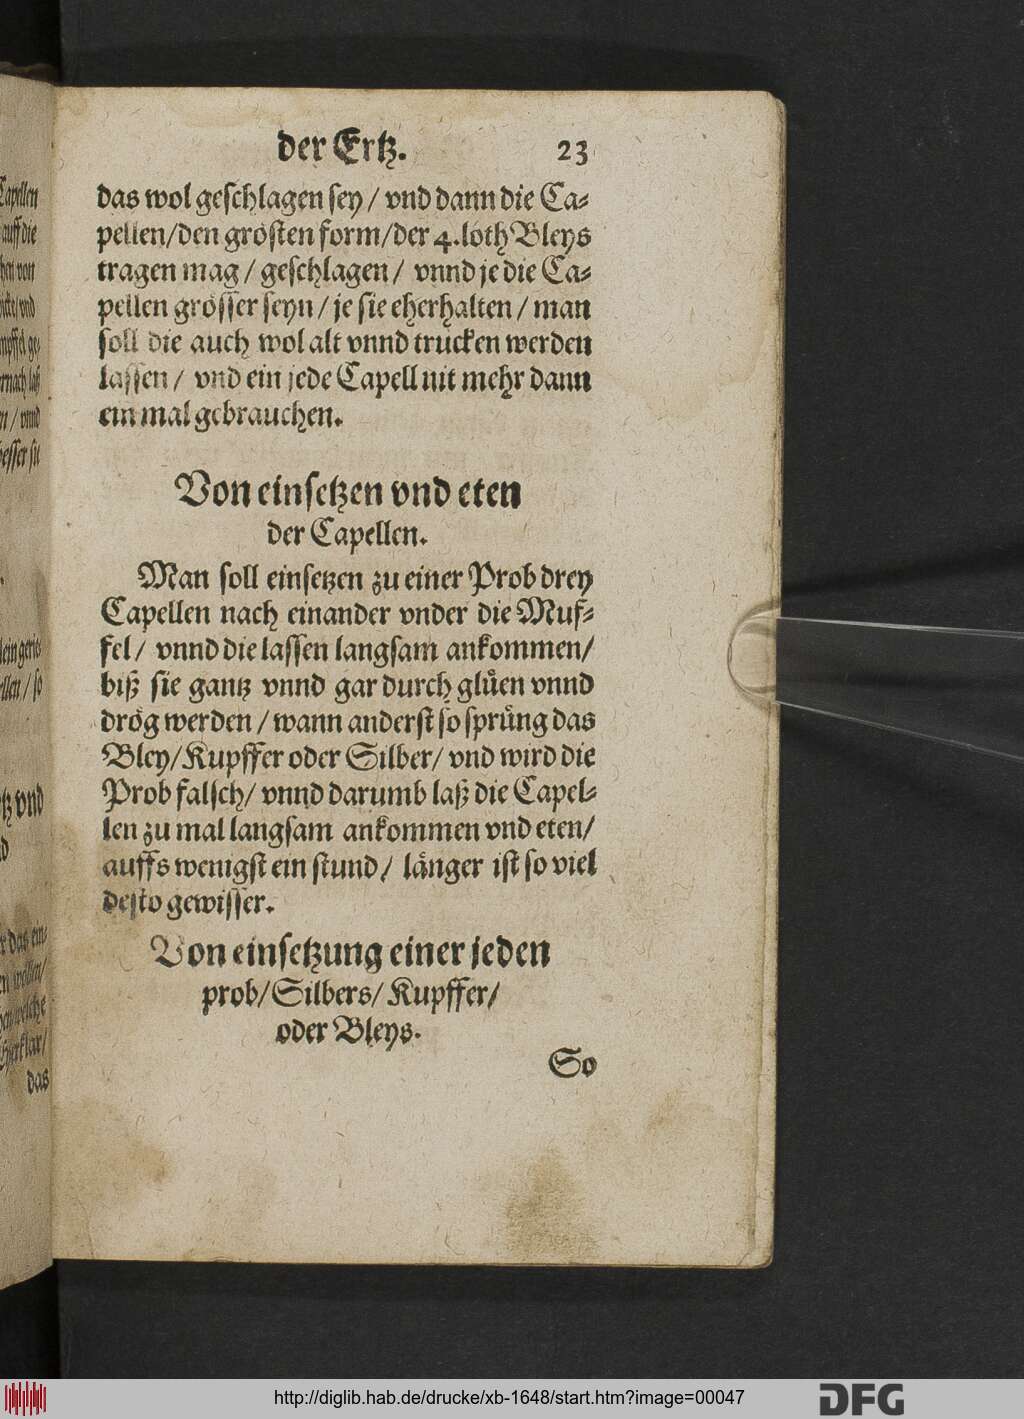 der Ertz. 23
das wol geschlagen sey / vnd dann die Ca-
pellen/den grösten form/der 4.loth Bleys
tragen mag / geschlagen / vnnd je die Ca-
pellen grösser seyn / je sie eherhalten / man
soll die auch wol alt vnnd trucken werden
lassen / vnd ein jede Capell nit mehr dann
ein mal gebrauchen.
Von einsetzen vnd eten
der Capellen.
Man soll einsetzen zu einer Prob drey
Capellen nach einander vnder die Muf-
fel / vnnd die lassen langsam ankommen/
biß sie gantz vnnd gar durch glüen vnnd
drög werden / wann anderst so sprüng das
Bley/Kupffer oder Silber/ vnd wird die
Prob falsch/ vnnd darumb laß die Capel-
len zu mal langsam ankommen vnd eten/
auffs wenigst ein stund / länger ist so viel
desto gewisser.
Von einsetzung einer jeden
prob/Silbers/Kupffer/
oder Bleys.
So
Capellen
auff die
das
http://diglib.hab.de/drucke/xb-1648/start.htm?image=00047
DFG